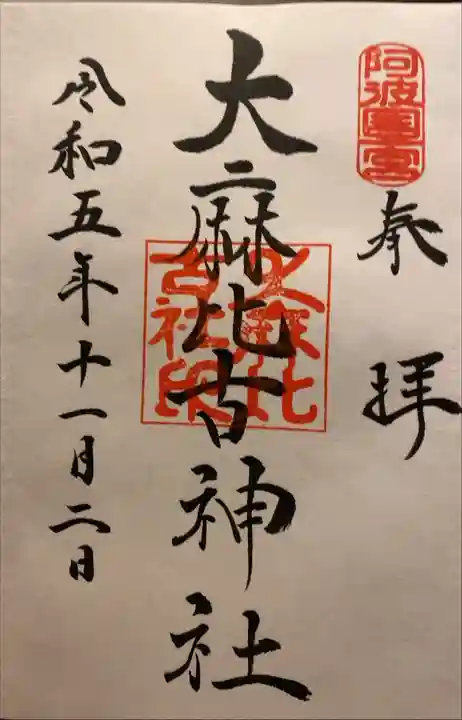 阿波國一宮
奉拝
大麻比古神社
大麻比古社印
令和五年十一月二日